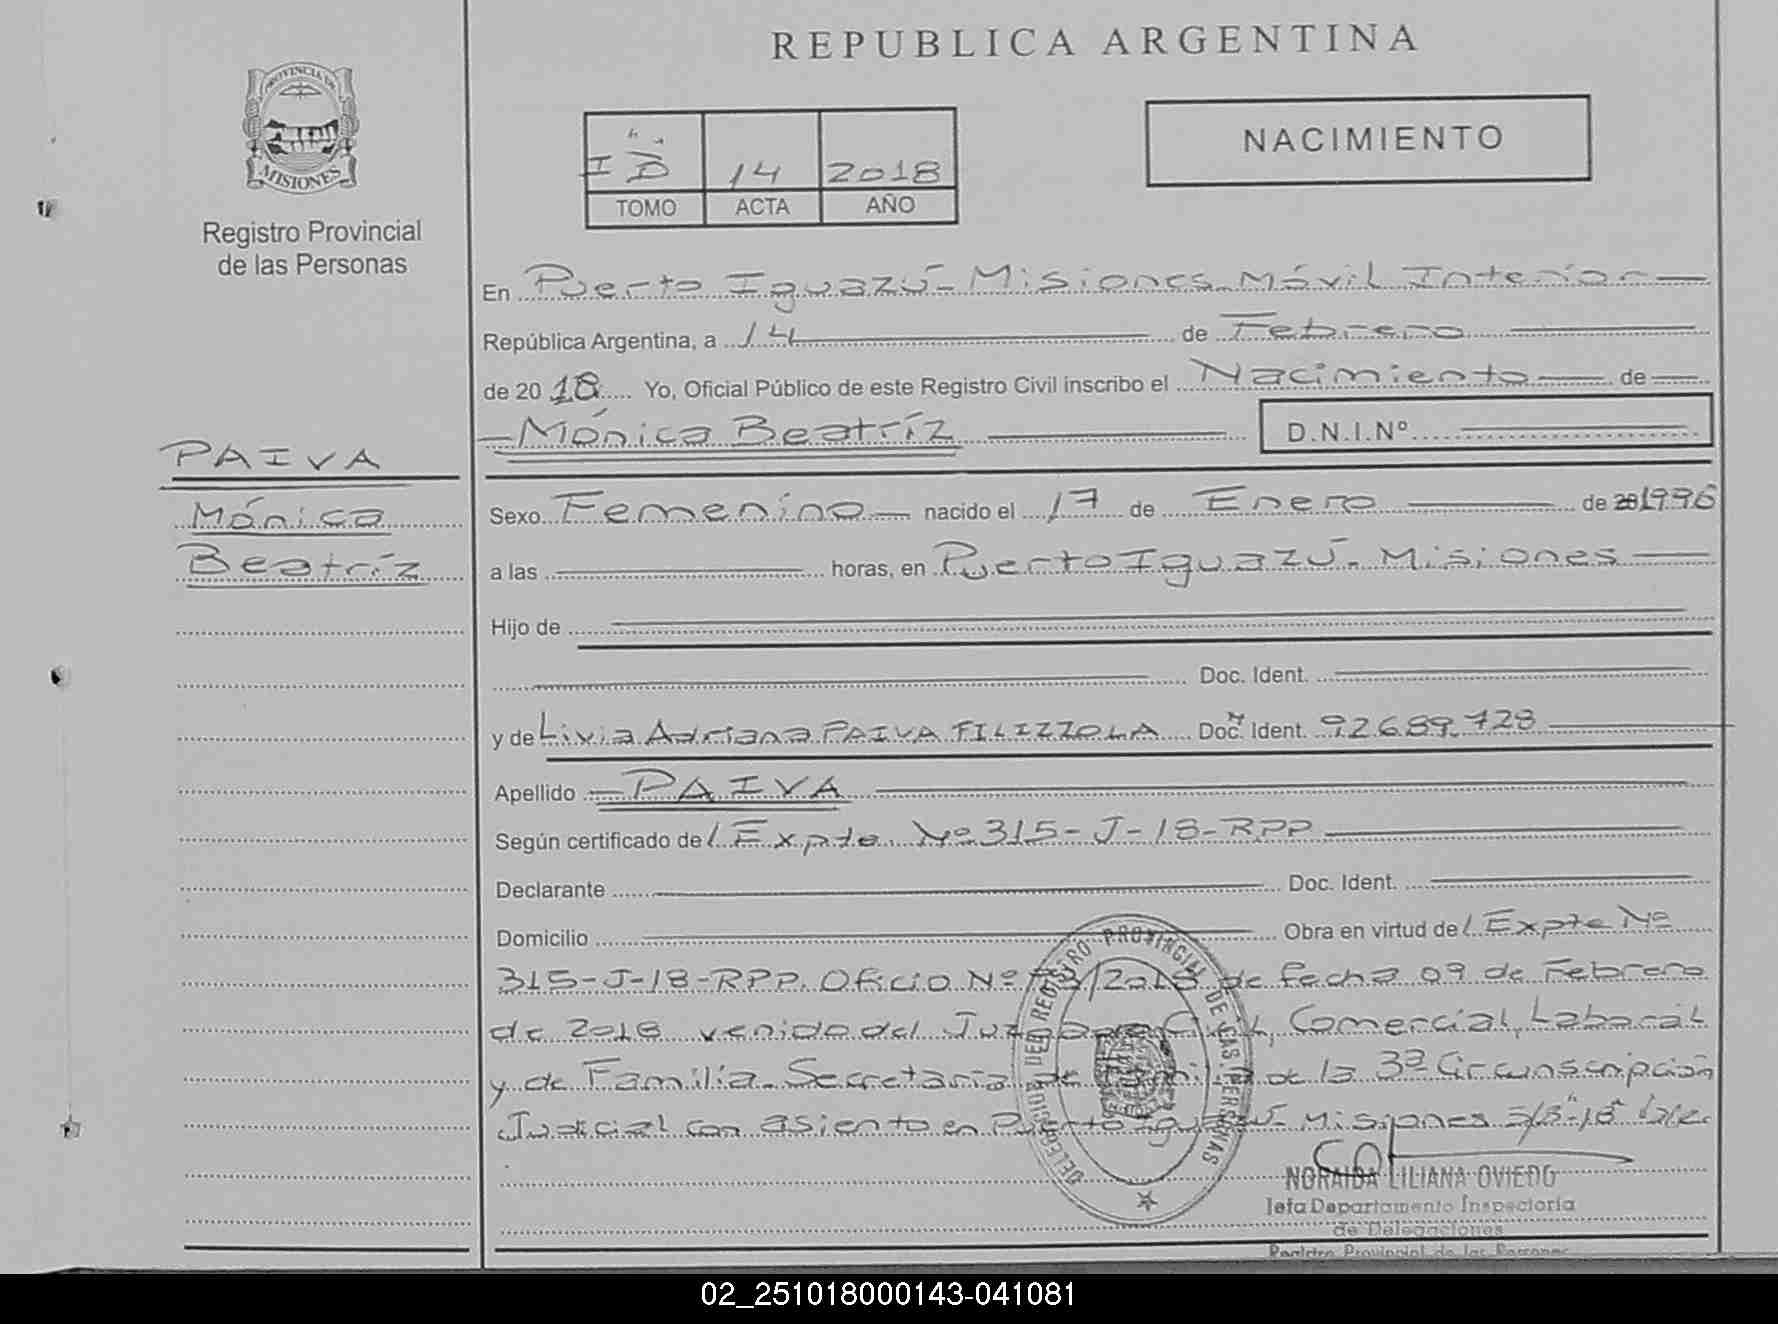 REPUBLICA ARGENTINA
PROVINCIA DE
MISIONES
Registro Provincial
de las Personas
I "D"
14
2018
TOMO
ACTA
AÑO
NACIMIENTO
En Puerto Iguazú - Misiones Móvil Interior
República Argentina, a 14 de Febrero
de 2018 Yo, Oficial Público de este Registro Civil inscribo el Nacimiento de
Mónica Beatríz
D.N.I.Nº
PAIVA
Mónica
Beatríz
Sexo Femenino nacido el 17 de Enero de 20 1996
a las horas, en Puerto Iguazú - Misiones
Hijo de
Doc. Ident.
y de Livia Adriana PAIVA FILIZZOLA Doc. Ident. 92.689.728
Apellido PAIVA
Según certificado de / Expte Nº 315-J-18-RPP
Declarante Doc. Ident.
Domicilio Obra en virtud de / Expte Nº
315-J-18-RPP. Oficio Nº /2018 de fecha 09 de Febrero
de 2018 venido del Juzgado Civil, Comercial, Laboral
y de Familia. Secretaría de Familia de la 3ª Circunscripción
Judicial con asiento en Puerto Iguazú - Misiones
DELEGACION DEL REGISTRO PROVINCIAL DE LAS PERSONAS
NORAIDA LILIANA OVIEDO
Jefa Departamento Inspectoría
de Delegaciones
Registro Provincial de las Personas
02_251018000143-041081